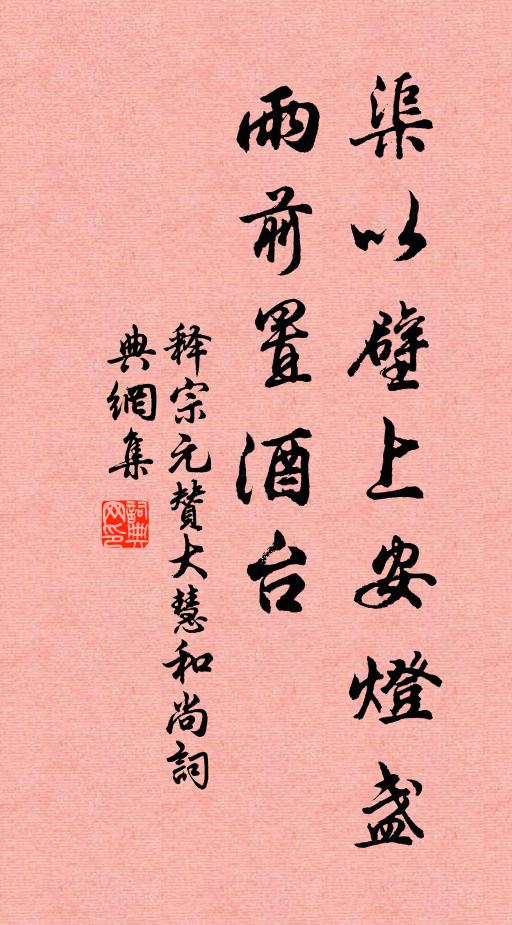 渠以壁上安燈盞
雨前置酒台
释宗元赞大慧和尚詞
典網集
詞典網印